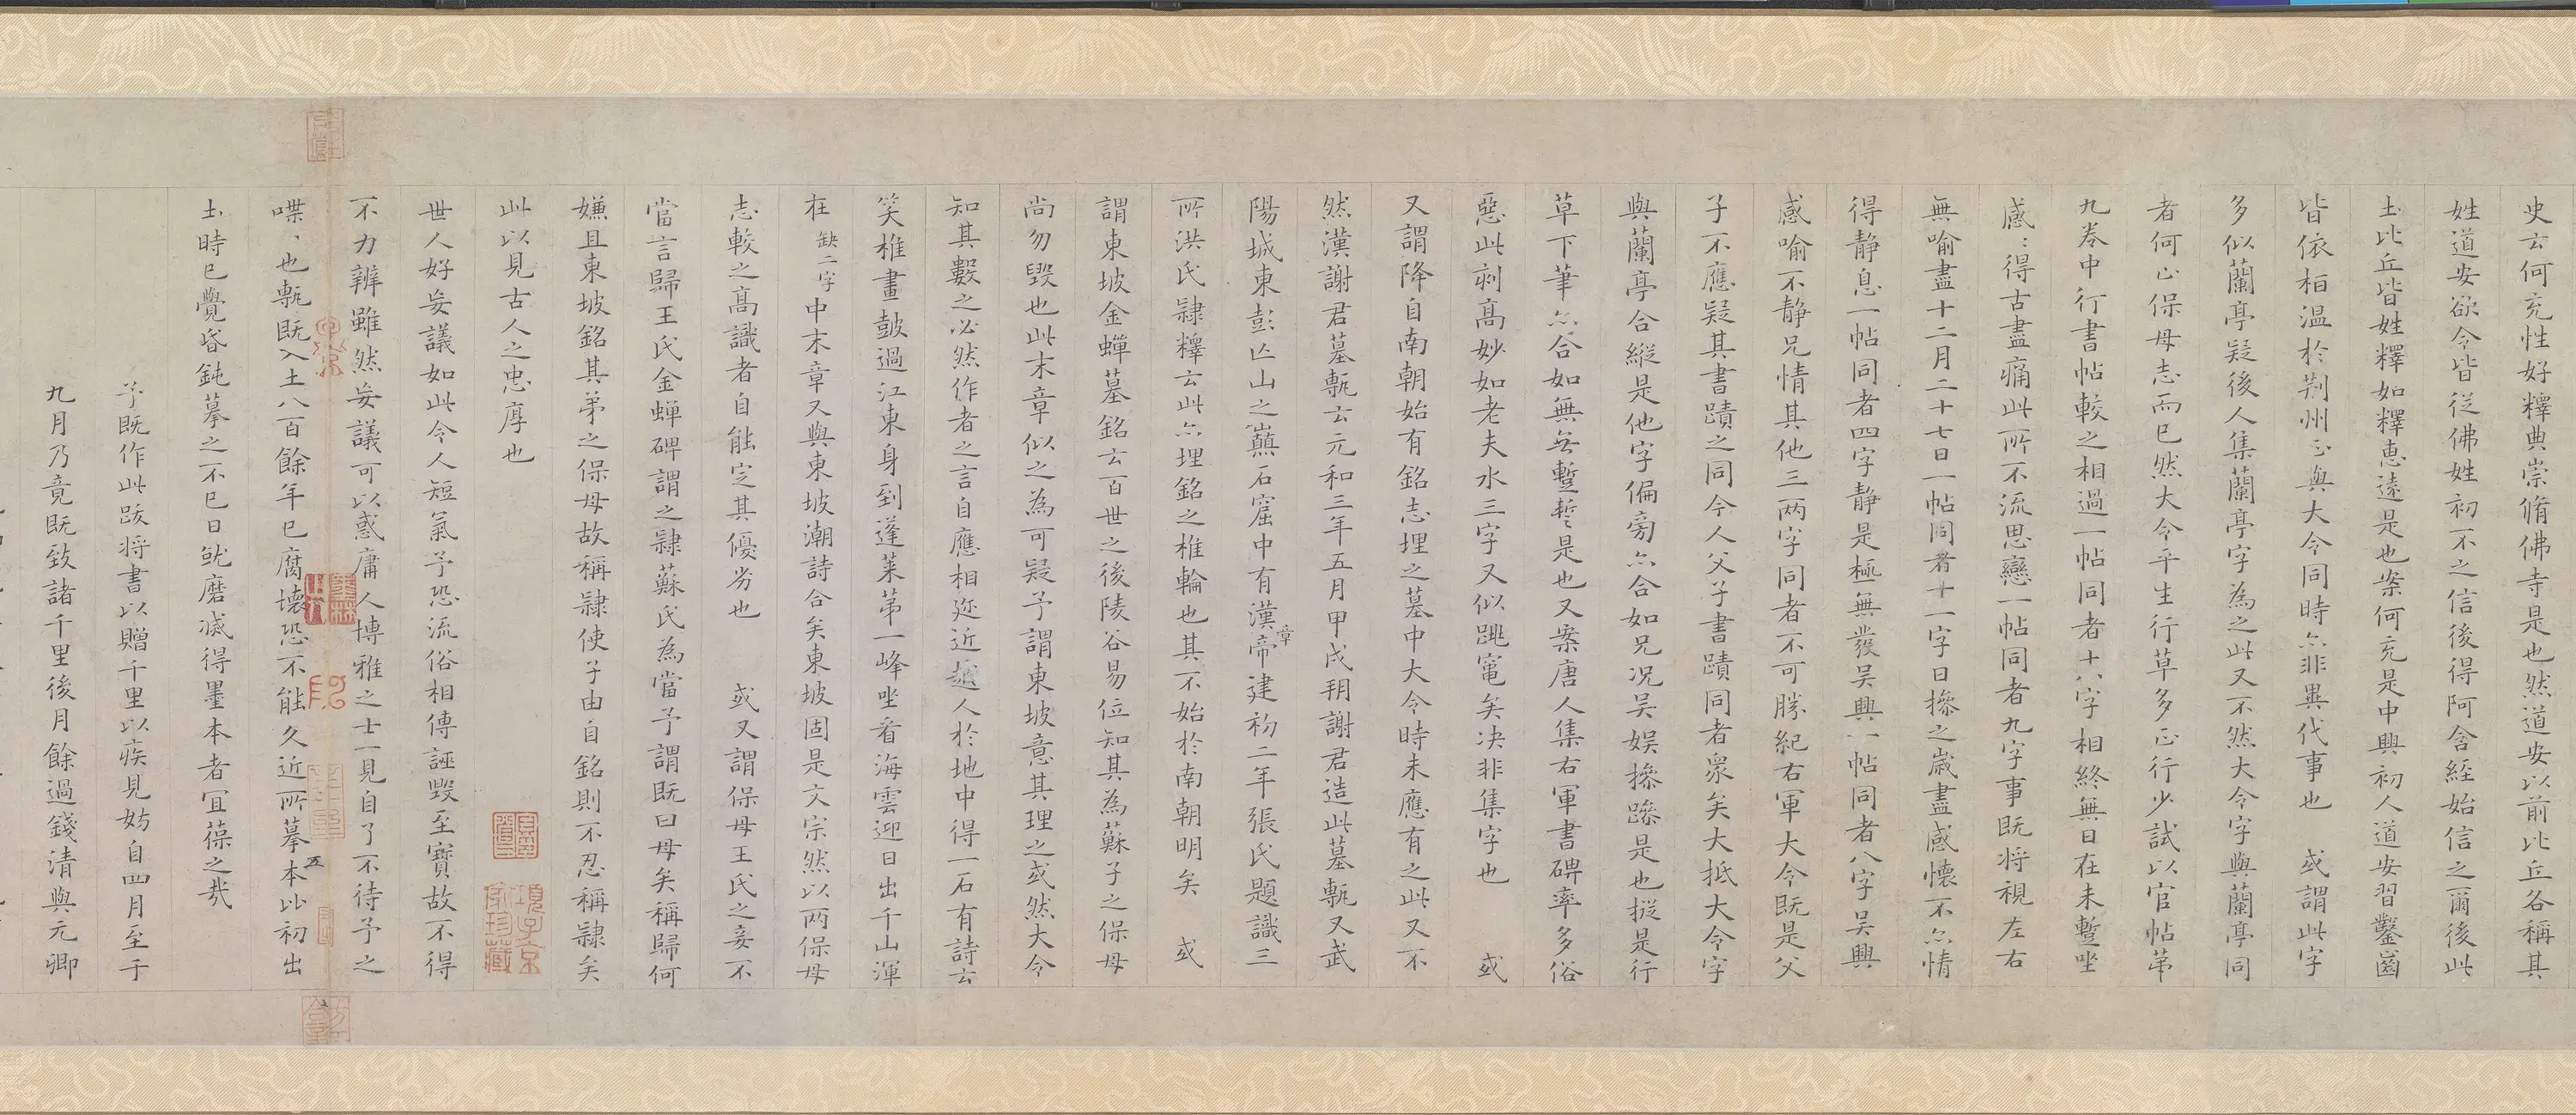 史云何充性好釋典崇脩佛寺是也然道安以前比丘各稱其
姓道安欲令皆從佛姓初不之信後得阿含經始信之爾後此
土比丘皆姓釋如釋惠遠是也案何充是中興初人道安習鑿齒
皆依桓溫於荆州正與大令同時亦非異代事也 或謂此字
多似蘭亭疑後人集蘭亭字為之此又不然大令字與蘭亭同
者何止保母志而已然大令平生行草多正行少試以官帖第
九卷中行書帖較之相過一帖同者十八字相終無日在未蹔坐
感〻得古盡痛此所不流思戀一帖同者九字事既將視左右
無喻盡十二月二十七日一帖同者十一字日摻之歲盡感懷不亦情
得靜息一帖同者四字靜是極無發吳興一帖同者八字吳興
感喻不靜兄情其他三兩字同者不可勝紀右軍大令既是父
子不應疑其書蹟之同今人父子書蹟同者眾矣大抵大令字
與蘭亭合縱是他字偏旁亦合如兄況吳娛摻蹨是也揔是行
草下筆亦合如無無蹔慙是也又案唐人集右軍書碑率多俗
惡此剡高妙如老夫水三字又似跳竃矣决非集字也 或
又謂降自南朝始有銘志埋之墓中大令時未應有之此又不
然漢謝君墓甎云元和三年五月甲戌朔謝君造此墓甎又武
陽城東彭亡山之巔石窟中有漢章帝建初二年張氏題識三
所洪氏隸釋云此亦埋銘之椎輪也其不始於南朝明矣 或
謂東坡金蟬墓銘云百世之後陵谷易位知其為蘇子之保母
尚勿毀也此末章似之為可疑予謂東坡意其理之或然大令
知其數之必然作者之言自應相近近越人於地中得一石有詩云
笑椎畫鼓過江東身到蓬萊第一峰坐看海雲迎日出千山渾
在缺二字中末章又與東坡潮詩合矣東坡固是文宗然以兩保母
志較之高識者自能定其優劣也 或又謂保母王氏之妾不
當言歸王氏金蟬碑謂之隸蘇氏為當予謂既曰母矣稱歸何
嫌且東坡銘其弟之保母故稱隸使子由自銘則不忍稱隸矣
此以見古人之忠厚也
世人好妄議如此令人短氣予恐流俗相傳誣毀至寶故不得
不力辨雖然妄議可以惑庸人博雅之士一見自了不待予之
喋〻也甎既入土八百餘年已腐壞恐不能久近所摹本比初出
土時已覺昏鈍摹之不已日就磨滅得墨本者冝葆之哉
予既作此跋將書以贈千里以疾見妨自四月至于
九月乃竟既致諸千里後月餘過錢清與元卿